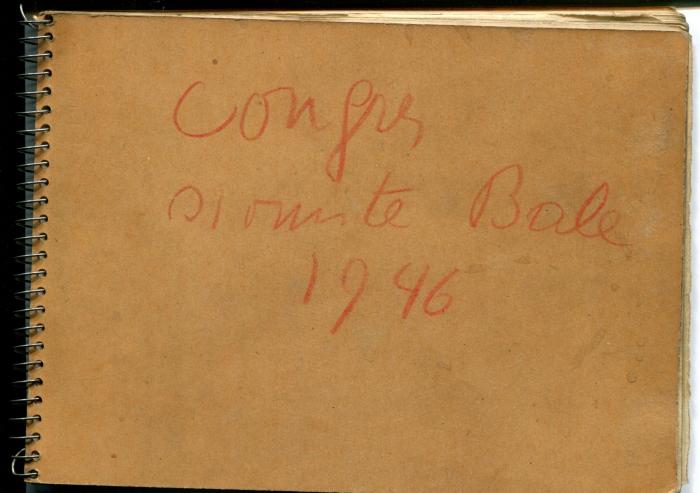 Congres
sioniste Bale
1946